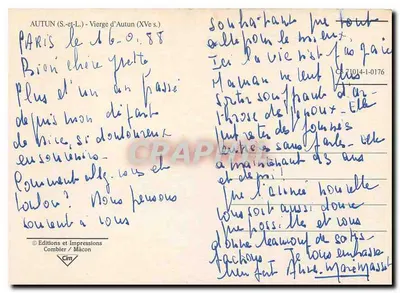 AUTUN (S.-et-L.) - Vierge d'Autun (XVe s.)
PARIS le 16.0.88
Bien chère
Plus d'un an passé
depuis mon départ
de Nice, si douloureux
en souvenirs.
Comment allez-vous et
Loulou? Nous pensons
souvent à vous
© Editions et Impressions
Combier / Mâcon
Cim
souhaitant que tout
aille pour le mieux.
Ici la vie n'est pas gaie
Maman ne veut plus
sortir souffrant d'ar-
throse des genoux. Elle
peut rester des journées
entières sans parler. Elle
a maintenant 93 ans
et demi!
Que l'année nouvelle
vous soit aussi douce
que possible et vous
donne beaucoup de satis-
factions. Je vous embrasse
bien fort
71014-1-0176